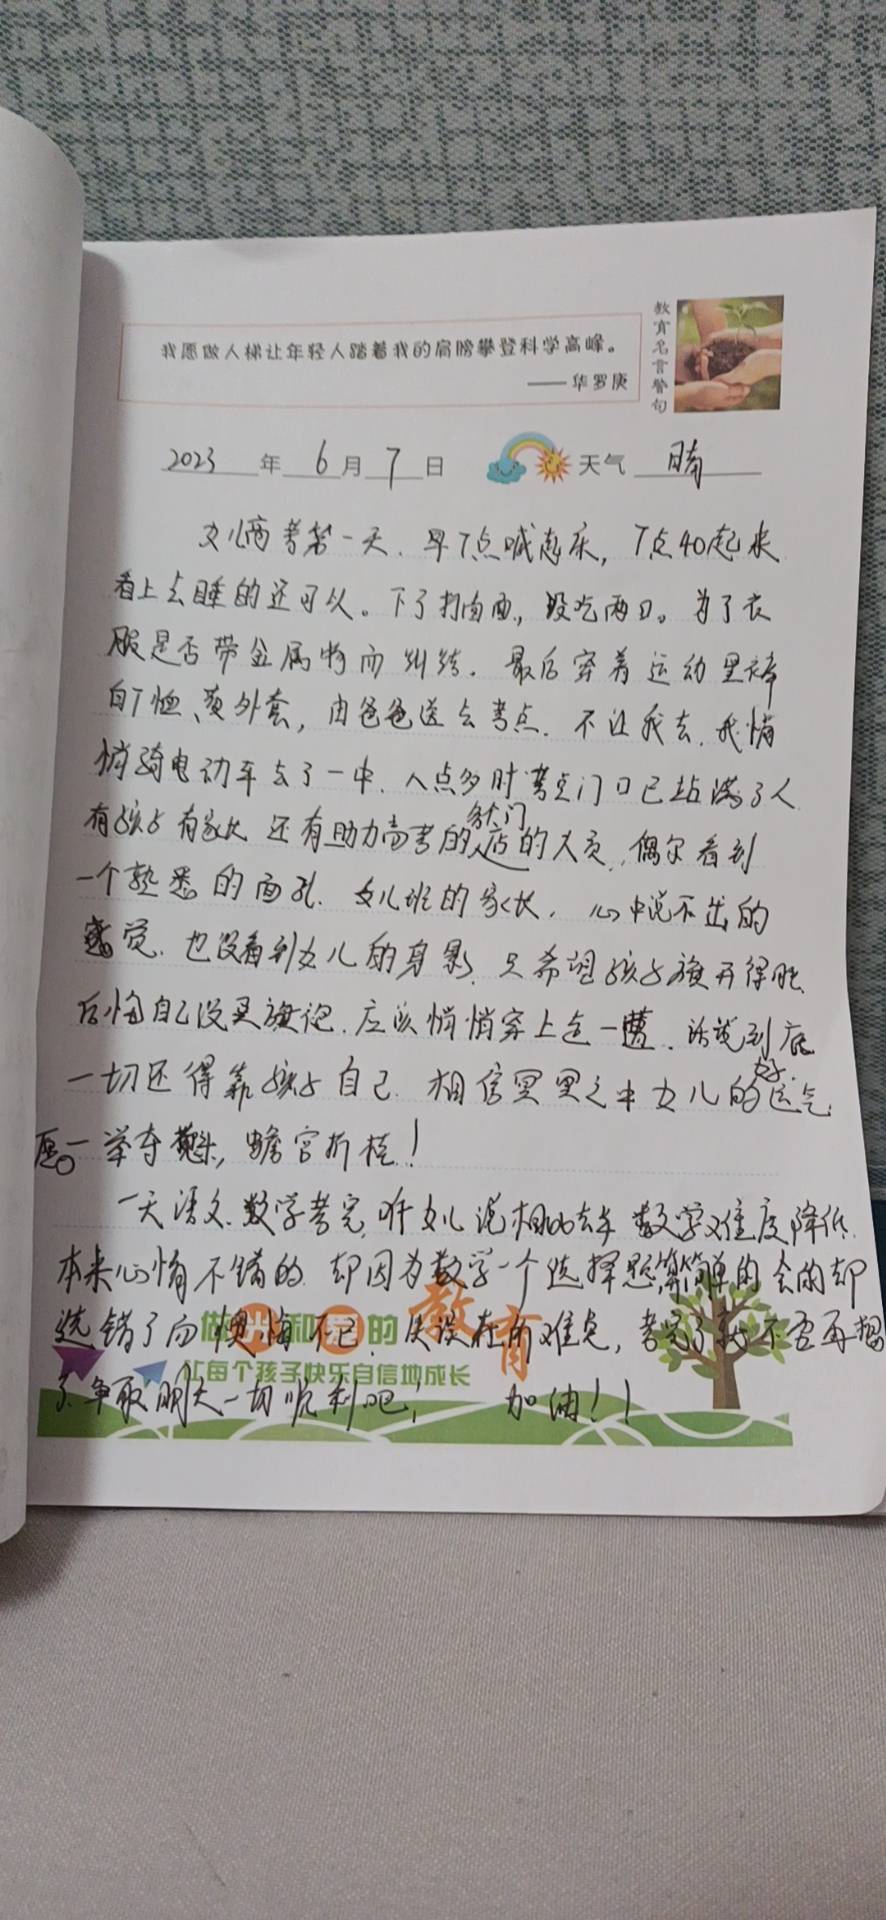 我愿做人梯让年轻人踏着我的肩膀攀登科学高峰。
——华罗庚
教育名言警句
2023年6月7日 天气 晴
女儿高考第一天. 早7点喊起床, 7点40起来
看上去睡的还可以。下了扪面, 没吃两口。为了衣
服是否带金属物而纠结. 最后穿着运动黑裤
白T恤、黄外套, 由爸爸送去考点. 不让我去. 我悄
悄骑电动车去了一中. 八点多时考点门口已站满了人
有孩子有家长 还有助力高考的各大门店的人员, 偶尔看到
一个熟悉的面孔. 女儿班的家长, 心中说不出的
感觉. 也没看到女儿的身影. 只希望孩子旗开得胜.
后悔自己没买旗袍. 应该悄悄穿上走一遭. 话说到底
一切还得靠孩子自己. 相信冥冥之中女儿的好运气
愿一举夺魁, 蟾宫折桂!
一天语文、数学考完, 听女儿说相比去年 数学难度降低.
本来心情不错的. 却因为数学一个选择题算简单的 会的却
选错了而懊悔不已. 失误在所难免, 考完了就不要再想
了. 争取明天一切顺利吧! 加油!!
做 和 的教育
让每个孩子快乐自信地成长